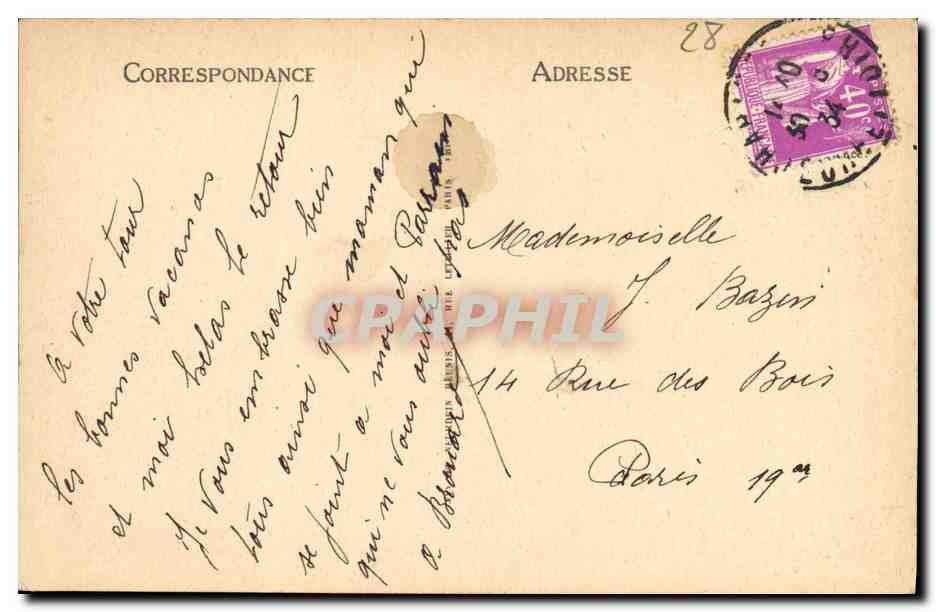 CORRESPONDANCE
ADRESSE
28
à votre tour
les bonnes vacances
et moi helas le retour
Je vous embrasse bien
tous ainsi que maman qui
se joint a moi et Parrain
qui ne vous oublie pas
a
Mademoiselle
J. Bazin
14 Rue des Bois
Paris 19
40c
POSTES
CPARPHIL